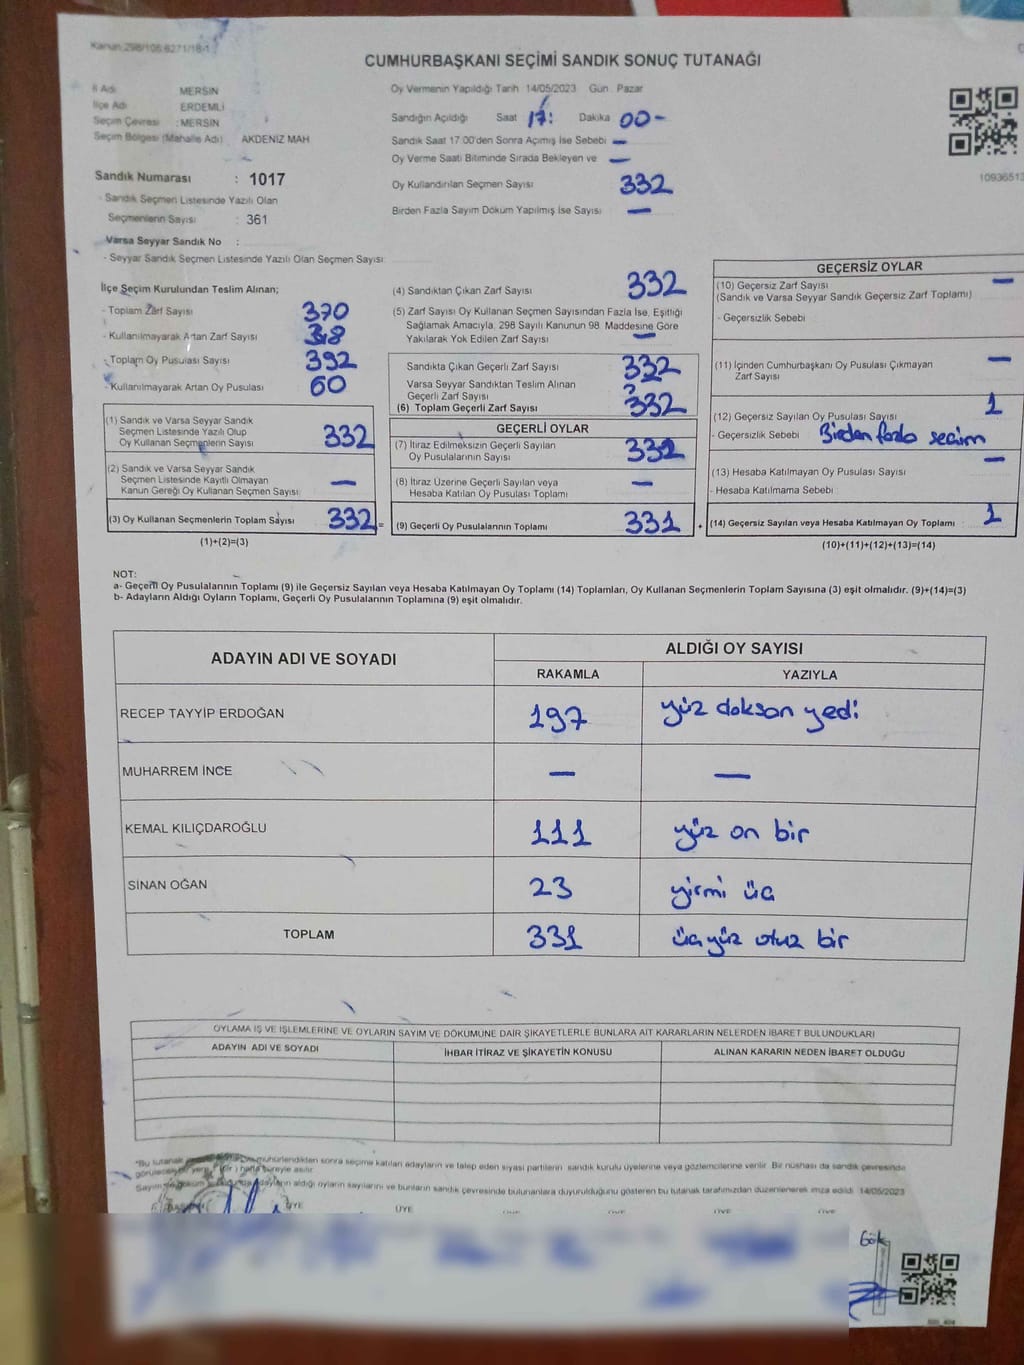 Kanun:298/106:6271/18-1
CUMHURBAŞKANI SEÇİMİ SANDIK SONUÇ TUTANAĞI
İl Adı MERSİN
İlçe Adı ERDEMLİ
Seçim Çevresi : MERSİN
Seçim Bölgesi (Mahalle Adı) AKDENİZ MAH
Sandık Numarası : 1017
- Sandık Seçmen Listesinde Yazılı Olan
Seçmenlerin Sayısı : 361
Varsa Seyyar Sandık No :
- Seyyar Sandık Seçmen Listesinde Yazılı Olan Seçmen Sayısı:
Oy Vermenin Yapıldığı Tarih 14/05/2023 Gün Pazar
Sandığın Açıldığı Saat 17: Dakika 00-
Sandık Saat 17 00'den Sonra Açımış İse Sebebi —
Oy Verme Saati Bitiminde Sırada Bekleyen ve —
Oy Kullandırılan Seçmen Sayısı 332
Birden Fazla Sayım Döküm Yapılmış İse Sayısı —
1093651
İlçe Seçim Kurulundan Teslim Alınan;
- Toplam Zarf Sayısı 370
- Kullanılmayarak Artan Zarf Sayısı 38
- Toplam Oy Pusulası Sayısı 392
- Kullanılmayarak Artan Oy Pusulası 60
(1) Sandık ve Varsa Seyyar Sandık
Seçmen Listesinde Yazılı Olup
Oy Kullanan Seçmenlerin Sayısı 332
(2) Sandık ve Varsa Seyyar Sandık
Seçmen Listesinde Kayıtlı Olmayan
Kanun Gereği Oy Kullanan Seçmen Sayısı —
(3) Oy Kullanan Seçmenlerin Toplam Sayısı 332 =
(1)+(2)=(3)
(4) Sandıktan Çıkan Zarf Sayısı 332
(5) Zarf Sayısı Oy Kullanan Seçmen Sayısından Fazla İse, Eşitliği
Sağlamak Amacıyla, 298 Sayılı Kanunun 98. Maddesine Göre
Yakılarak Yok Edilen Zarf Sayısı —
Sandıkta Çıkan Geçerli Zarf Sayısı 332
Varsa Seyyar Sandıktan Teslim Alınan
Geçerli Zarf Sayısı
(6) Toplam Geçerli Zarf Sayısı 332
GEÇERLİ OYLAR
(7) İtiraz Edilmeksizin Geçerli Sayılan
Oy Pusulalarının Sayısı 331
(8) İtiraz Üzerine Geçerli Sayılan veya
Hesaba Katılan Oy Pusulası Toplamı —
(9) Geçerli Oy Pusulalarının Toplamı 331 +
GEÇERSİZ OYLAR
(10) Geçersiz Zarf Sayısı —
(Sandık ve Varsa Seyyar Sandık Geçersiz Zarf Toplamı)
- Geçersizlik Sebebi
(11) İçinden Cumhurbaşkanı Oy Pusulası Çıkmayan —
Zarf Sayısı
(12) Geçersiz Sayılan Oy Pusulası Sayısı 1
- Geçersizlik Sebebi Birden fazla seçim
(13) Hesaba Katılmayan Oy Pusulası Sayısı —
- Hesaba Katılmama Sebebi
(14) Geçersiz Sayılan veya Hesaba Katılmayan Oy Toplamı : 1
(10)+(11)+(12)+(13)=(14)
NOT:
a- Geçerli Oy Pusulalarının Toplamı (9) ile Geçersiz Sayılan veya Hesaba Katılmayan Oy Toplamı (14) Toplamları, Oy Kullanan Seçmenlerin Toplam Sayısına (3) eşit olmalıdır. (9)+(14)=(3)
b- Adayların Aldığı Oyların Toplamı, Geçerli Oy Pusulalarının Toplamına (9) eşit olmalıdır.
ADAYIN ADI VE SOYADI ALDIĞI OY SAYISI
RAKAMLA YAZIYLA
RECEP TAYYİP ERDOĞAN 197 yüz doksan yedi
MUHARREM İNCE — —
KEMAL KILIÇDAROĞLU 111 yüz on bir
SİNAN OĞAN 23 yirmi üç
TOPLAM 331 üç yüz otuz bir
OYLAMA İŞ VE İŞLEMLERİNE VE OYLARIN SAYIM VE DÖKÜMÜNE DAİR ŞİKAYETLERLE BUNLARA AİT KARARLARIN NELERDEN İBARET BULUNDUKLARI
ADAYIN ADI VE SOYADI İHBAR İTİRAZ VE ŞİKAYETİN KONUSU ALINAN KARARIN NEDEN İBARET OLDUĞU
*Bu tutanak mühürlendikten sonra seçime katılan adayların ve talep eden siyasi partilerin sandık kurulu üyelerine veya gözlemcilerine verilir. Bir nüshası da sandık çevresinde
görülecek bir yere hafta süreyle asılır
adayların aldığı oyların sayılarını ve bunların sandık çevresinde bulunanlara duyurulduğunu gösteren bu tutanak tarafımızdan düzenlenerek imza edildi 14/05/2023
ÜYE ÜYE ÜYE ÜYE ÜYE ÜYE
Gök